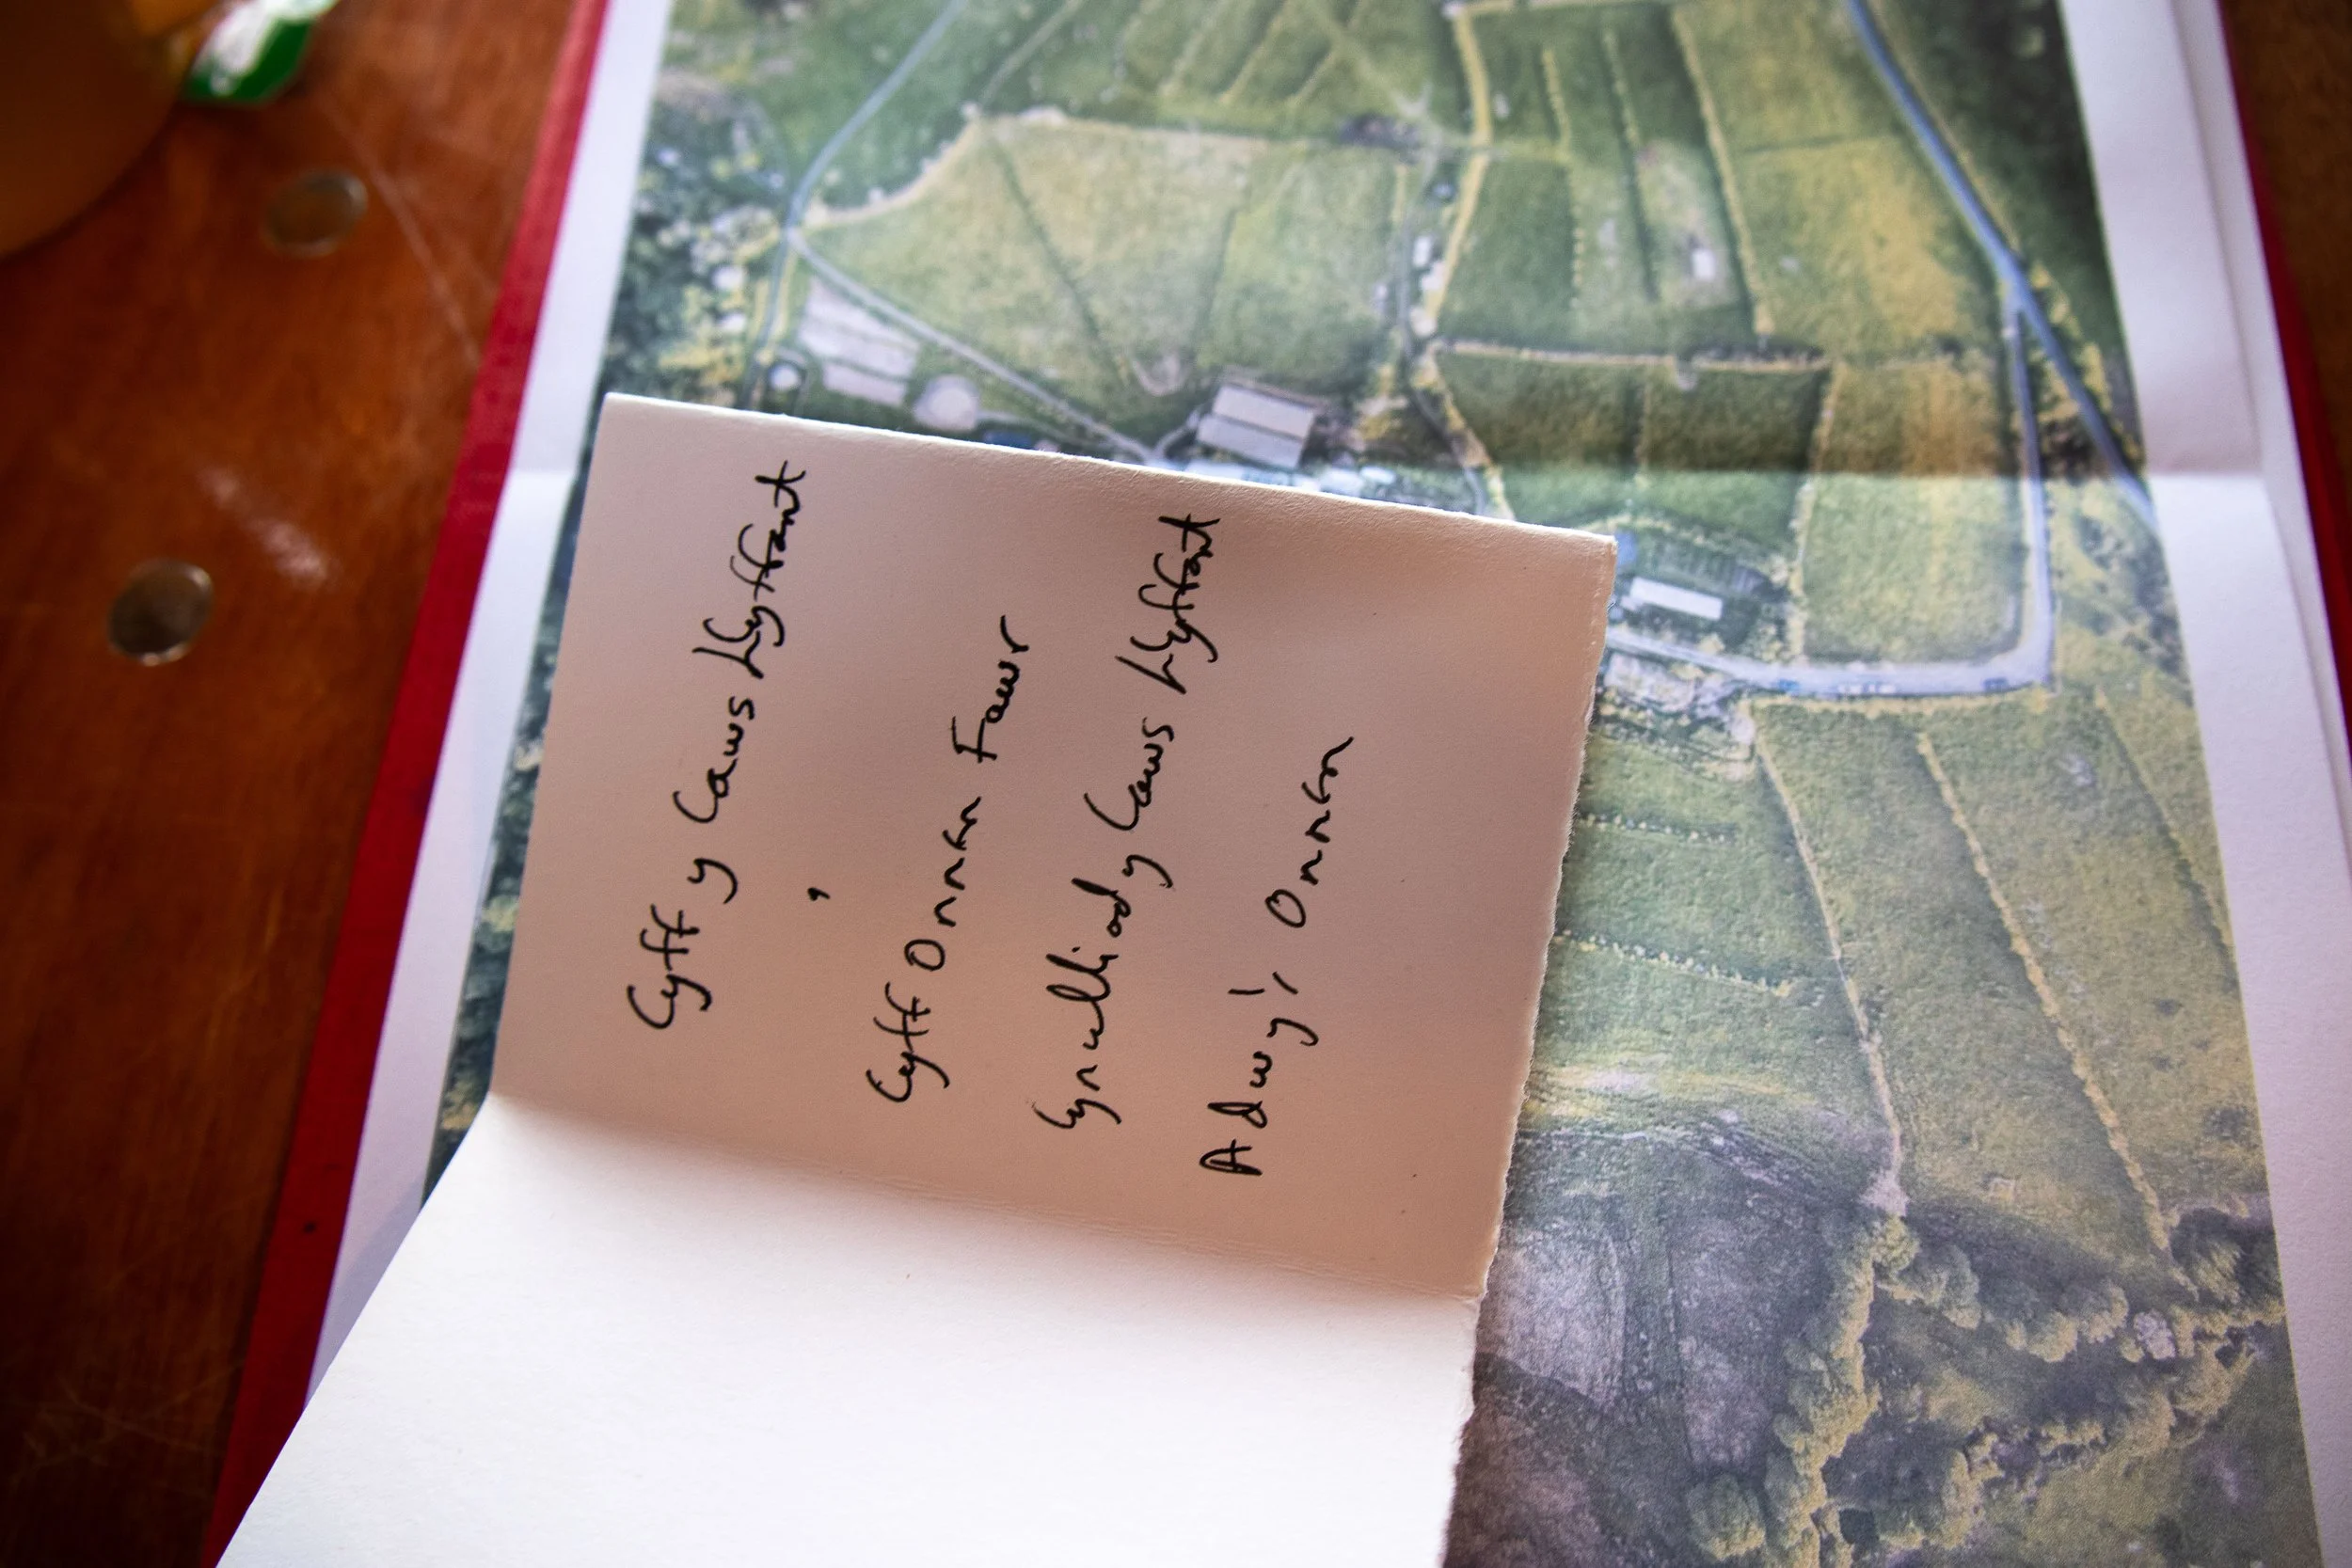 Cyff y Caws Llyffant
Cyff Onnen Fawr
Cynulliad y Caws Llyffant
Adwy'r Onnen